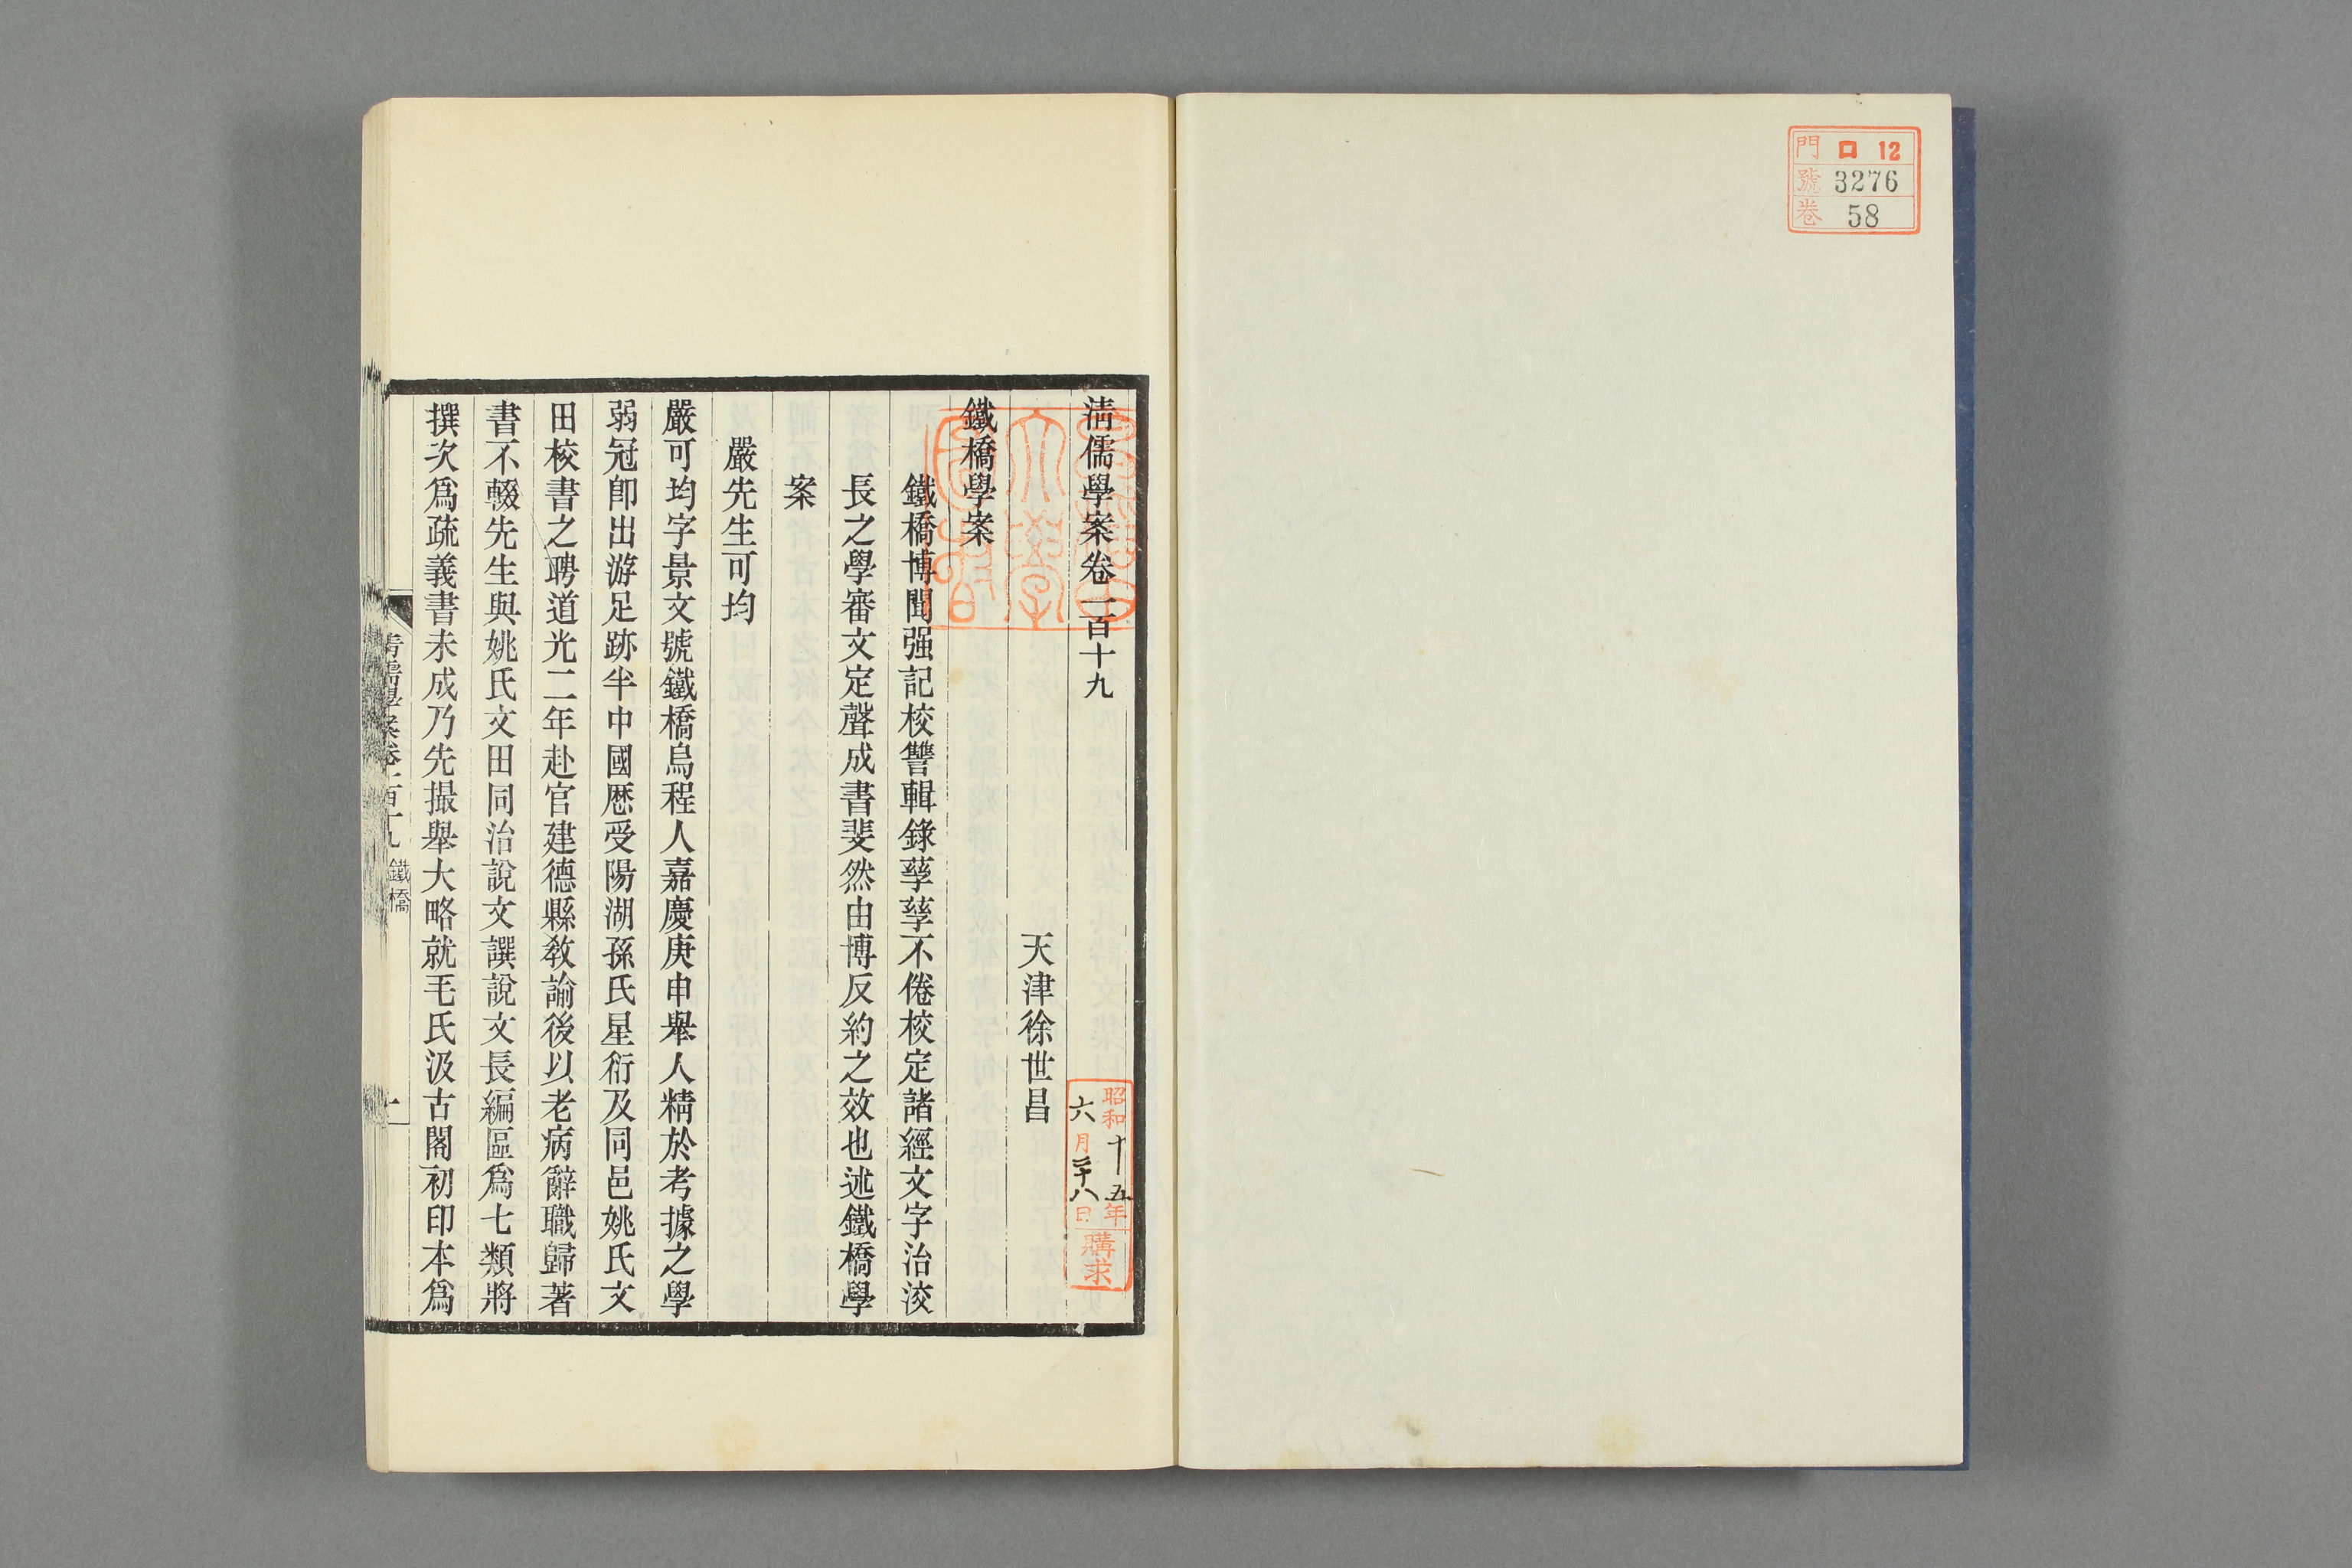 門 ロ 12
號 3276
卷 58
淸儒學案卷一百十九
天津徐世昌
鐵橋學案
鐵橋博聞强記校讐輯錄孳孳不倦校定諸經文字治汥
長之學審文定聲成書斐然由博反約之效也述鐵橋學
案
嚴先生可均
嚴可均字景文號鐵橋烏程人嘉慶庚申舉人精於考據之學
弱冠卽出游足跡半中國歷受陽湖孫氏星衍及同邑姚氏文
田校書之聘道光二年赴官建德縣敎諭後以老病辭職歸著
書不輟先生與姚氏文田同治說文譔說文長編區爲七類將
撰次爲疏義書未成乃先撮舉大略就毛氏汲古閣初印本爲
淸儒學案卷一百十九 鐵橋 一
昭和十五年
六月二十八日
購求